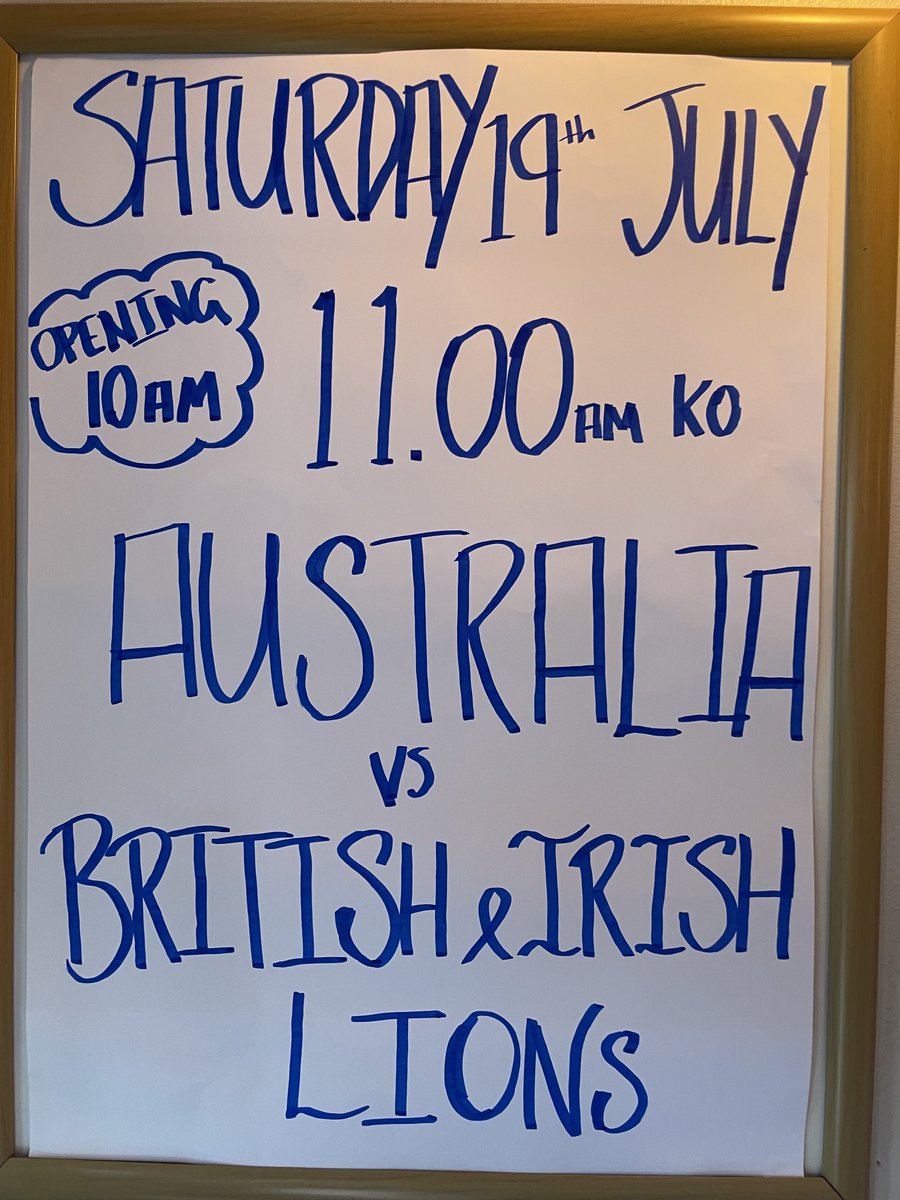 SATURDAY 19th JULY
OPENING
10 AM
11.00 AM KO
AUSTRALIA
VS
BRITISH & IRISH
LIONS